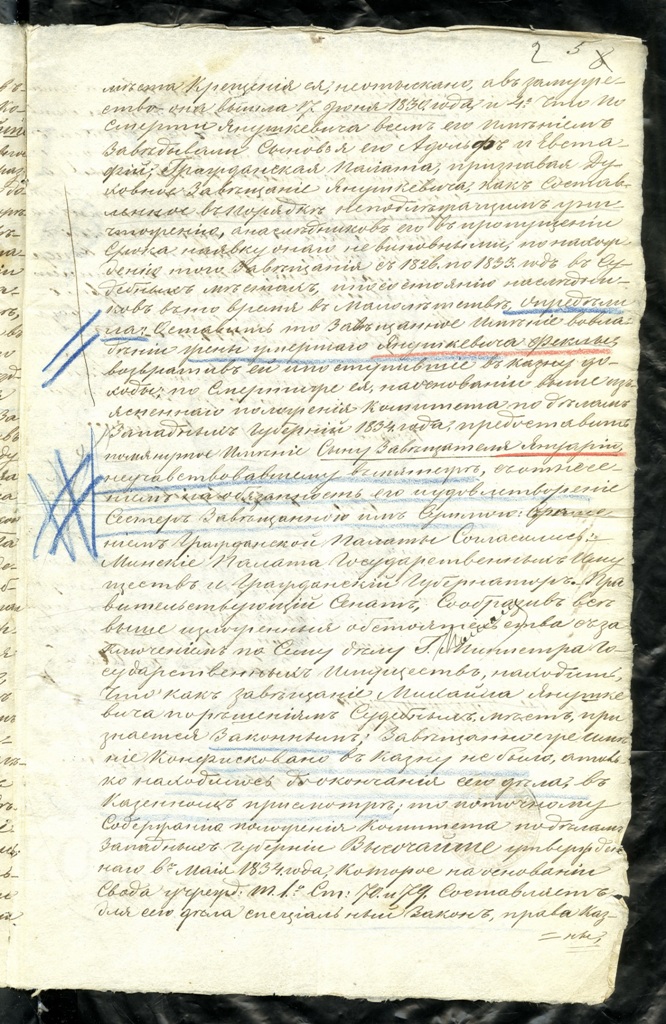 2 5
мѣста Крещенія ея, неотыскано, а въ замуже-
ство она вышла 17 Іюня 1830 года, и 4е что по
смерти Янушкевича всемъ его имѣніемъ
завѣдывали Сыновья его Адольфъ и Евста-
фій; Гражданская Палата, признавая Ду-
ховное Завѣщаніе Янушкевича, какъ состав-
ленное въ порядкѣ неподлѣжащимъ уни-
чтоженію, а наслѣдниковъ его въ пропущеніи
Срока на явку онаго невиновными, по нахож-
денію того Завѣщанія съ 1826. по 1833. годъ въ Су-
дебныхъ мѣстахъ, и по состоянію наслѣдни-
ковъ въ то время въ Малолѣтствѣ, опредѣли-
ла: Оставить то Завѣщанное Имѣніе во вла-
дѣніи жены умершаго Янушкевича Феклы,
возвративъ ей и поступившіе въ казну до-
ходы, по Смерти же ея, на основаніи выше изъ-
ясненнаго положенія Комитета по дѣламъ
Западныхъ Губерній 1834 года, предоставить
помянутое Имѣніе Сыну Завѣщателя Януарію,
неучавствовавшему въ мятежѣ, съ отнесе-
ніемъ на обязанность его и удовлетвореніе
Сестеръ Завѣщанною имъ Суммою. Съ
ніемъ Гражданской Палаты Согласились:
Минскіе Палата Государственныхъ Иму-
ществъ и Гражданскій Губернаторъ. Пра-
вительствующій Сенатъ, Сообразивъ всѣ
выше изложенныя обстоятельства съ за-
ключеніемъ по Сему дѣлу Г. Министра Го-
сударственныхъ Имуществъ, находитъ,
Что какъ завѣщаніе Михайла Янушке-
вича по рѣшеніямъ Судебныхъ мѣстъ, при-
знается Законнымъ; Завѣщанное же имѣ-
ніе Конфисковано въ Казну не было, а толь-
ко находилось до окончанія сего дѣла, въ
Казенномъ присмотрѣ; то по точному
Содержанію положенія Комитета по дѣламъ
Западныхъ Губерній Высочайше утвержден-
наго 6го Маія 1834 года, которое на основаніи
Свода учрежд. т. 1. Ст: 70. и 79. Составляетъ
для сего дѣла спеціальный Законъ, права Каз-
= ны,